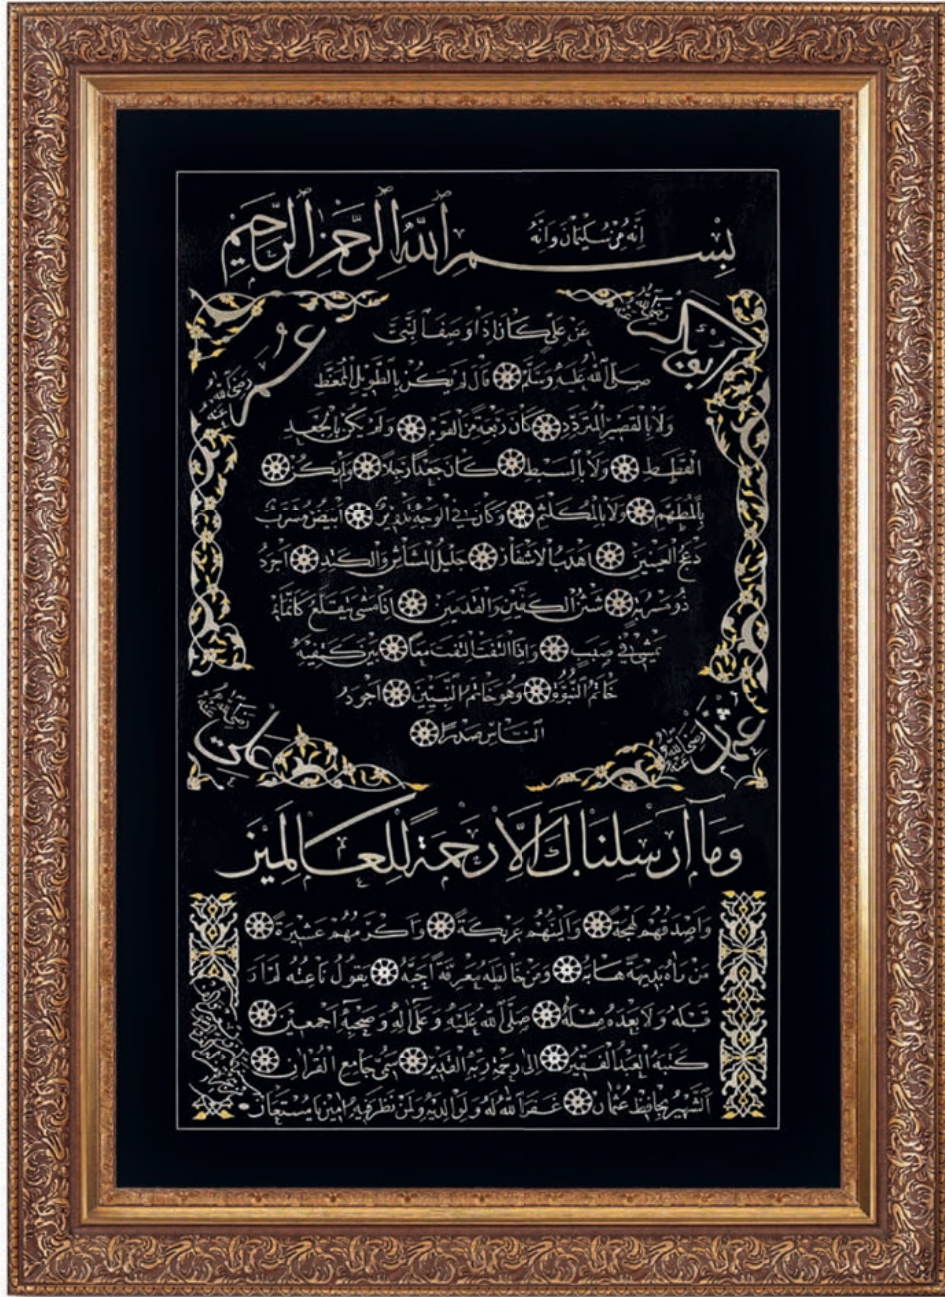 انه من سليمان وانه
بسم الله الرحمن الرحيم
ابو بكر
رضي الله عنه
عمر
رضي الله عنه
عن علي كان اذا وصف النبي
صلى الله عليه وسلم قال لم يكن بالطويل الممغط
ولا بالقصير المتردد كان ربعة من القوم ولم يكن بالجعد
القطط ولا بالسبط كان جعدا رجلا ولم يكن
بالمطهم ولا بالمكلثم وكان في الوجه تدوير ابيض مشرب
ادعج العينين اهدب الاشفار جليل المشاش والكتد اجرد
ذو مسربة شثن الكفين والقدمين اذا مشى يتقلع كانما
يمشي في صبب واذا التفت التفت معا بين كتفيه
خاتم النبوة وهو خاتم النبيين اجود
الناس صدرا
عثمان
رضي الله عنه
علي
رضي الله عنه
وما ارسلناك الا رحمة للعالمين
واصدقهم لهجة والينهم عريكة واكرمهم عشيرة
من رآه بديهة هابه ومن خالطه معرفة احبه يقول ناعته لم ار
قبله ولا بعده مثله صلى الله عليه وعلى اله وصحبه اجمعين
كتبه العبد الفقير الى رحمة ربه القدير سمي جامع القران
الشهير بحافظ عثمان غفر الله له ولوالديه ولمن نظر فيه امين يا مستعان